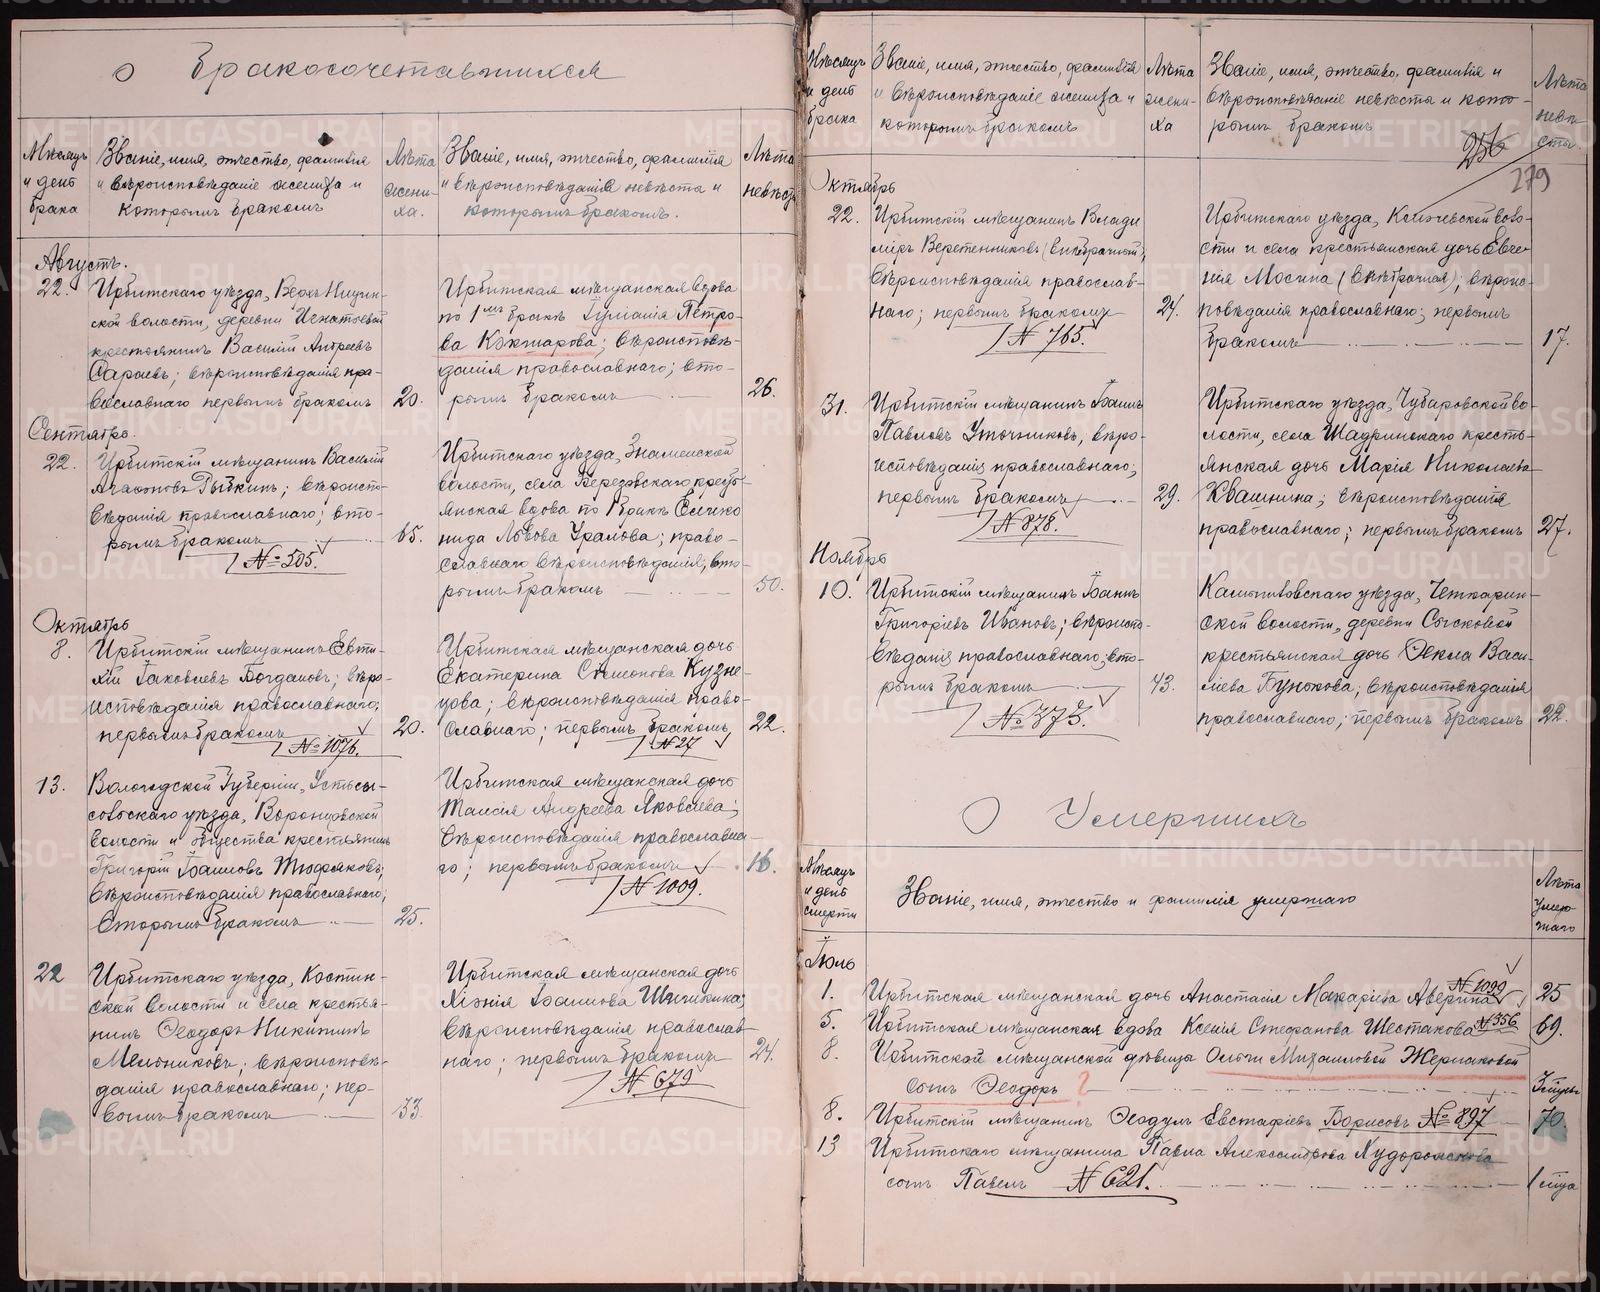 О бракосочетавшихся
Мѣсяцъ
и день
брака
Званіе, имя, отчество, фамилія
и вѣроисповѣданіе жениха и
которымъ бракомъ
Лѣта
жени-
ха.
Званіе, имя, отчество, фамилія
и вѣроисповѣданія невѣсты и
которымъ бракомъ.
Лѣта
невѣсты
Августъ.
22.
Ирбитскаго уѣзда, Верхъ Ницин-
ской волости, деревни Игнатьевой
крестьянинъ Василій Андреевъ
Сараевъ; вѣроисповѣданія пра-
вославнаго первымъ бракомъ
20.
Ирбитская мѣщанская вдова
по 1мъ бракѣ Іуліанія Петро-
ва Кокшарова; вѣроисповѣ-
данія православнаго; вто-
рымъ бракомъ
26.
Сентябрь.
22.
Ирбитскій мѣщанинъ Василій
Агафоновъ Рыбкинъ; вѣроиспо-
вѣданія православнаго; вто-
рымъ бракомъ
№ 505.
65.
Ирбитскаго уѣзда, Знаменской
волости, села Березовскаго кресть-
янская вдова по бракѣ
Львова Уралова; право-
славнаго вѣроисповѣданія, вто-
рымъ бракомъ
50.
Октябрь
8.
Ирбитскій мѣщанинъ Евти-
хій Іаковлевъ Богдановъ; вѣро-
исповѣданія православнаго;
первымъ бракомъ
№ 1076.
20.
Ирбитская мѣщанская дочь
Екатерина Симонова Кузне-
цова; вѣроисповѣданія право-
славнаго; первымъ бракомъ
№ 27
22.
13.
Вологодской Губерніи, Устьсы-
сольскаго уѣзда, Воронцовской
волости и общества крестьянинъ
Григорій Іоанновъ Тюфяковъ;
вѣроисповѣданія православнаго;
вторымъ бракомъ
25.
Ирбитская мѣщанская дочь
Таисія Андреева Яковлева;
вѣроисповѣданія православна-
го; первымъ бракомъ
№ 1009.
16.
22
Ирбитскаго уѣзда, Костин-
ской волости и села крестья-
нинъ Ѳеодоръ Никитинъ
Мельниковъ; вѣроисповѣ-
данія православнаго; пер-
вымъ бракомъ
33.
Ирбитская мѣщанская дочь
Хіонія Іоаннова Шишкина;
вѣроисповѣданія православ-
наго; первымъ бракомъ
№ 679
24.
Мѣсяцъ
и день
брака
Званіе, имя, отчество, фамилія
и вѣроисповѣданіе жениха и
которымъ бракомъ
Лѣта
жени-
ха
Званіе, имя, отчество, фамилія и
вѣроисповѣданіе невѣсты и кото-
рымъ бракомъ
Лѣта
невѣ-
сты
256
279
Октябрь
22.
Ирбитскій мѣщанинъ Влади
міръ Веретенниковъ (внѣбрачный);
вѣроисповѣданія православ-
наго; первымъ бракомъ
№ 765.
24.
Ирбитскаго уѣзда, Ключевской воло-
сти и села крестьянская дочь Евге-
нія Мосина (внѣбрачная); вѣроис-
повѣданія православнаго; первымъ
бракомъ
17.
31.
Ирбитскій мѣщанинъ Іоаннъ
Павловъ Уточниковъ, вѣро-
исповѣданія православнаго,
первымъ бракомъ
№ 878.
29.
Ирбитскаго уѣзда, Чубаровской во-
лости, села Шадринскаго кресть-
янская дочь Марія Николаева
Квашнина; вѣроисповѣданія
православнаго; первымъ бракомъ
27.
Ноябрь
10.
Ирбитскій мѣщанинъ Іоаннъ
Григоріевъ Ивановъ; вѣроиспо-
вѣданія православнаго; вто-
рымъ бракомъ
№ 373.
43.
Камышловскаго уѣзда, Четкарин-
ской волости, деревни
крестьянская дочь Ѳекла Васи-
ліева Бунькова; вѣроисповѣданія
православнаго; первымъ бракомъ
22.
О Умершихъ
Мѣсяцъ
и день
смерти
Званіе, имя, отчество и фамилія умершаго
Лѣта
умер-
шаго
Іюль
1.
Ирбитская мѣщанская дочь Анастасія Макаріева Аверина № 1099
25
5.
Ирбитская мѣщанская вдова Ксенія Стефанова Шестакова № 556
69.
8.
Ирбитской мѣщанской дѣвицы Ольги Михаиловой Жерлаковой
сынъ Ѳеодоръ ?
8.
Ирбитскій мѣщанинъ Ѳеодулъ Евстафіевъ Борисовъ № 897
70.
13
Ирбитскаго мѣщанина Павла Александрова Худорожкова
сынъ Павелъ № 621.
1 мѣся